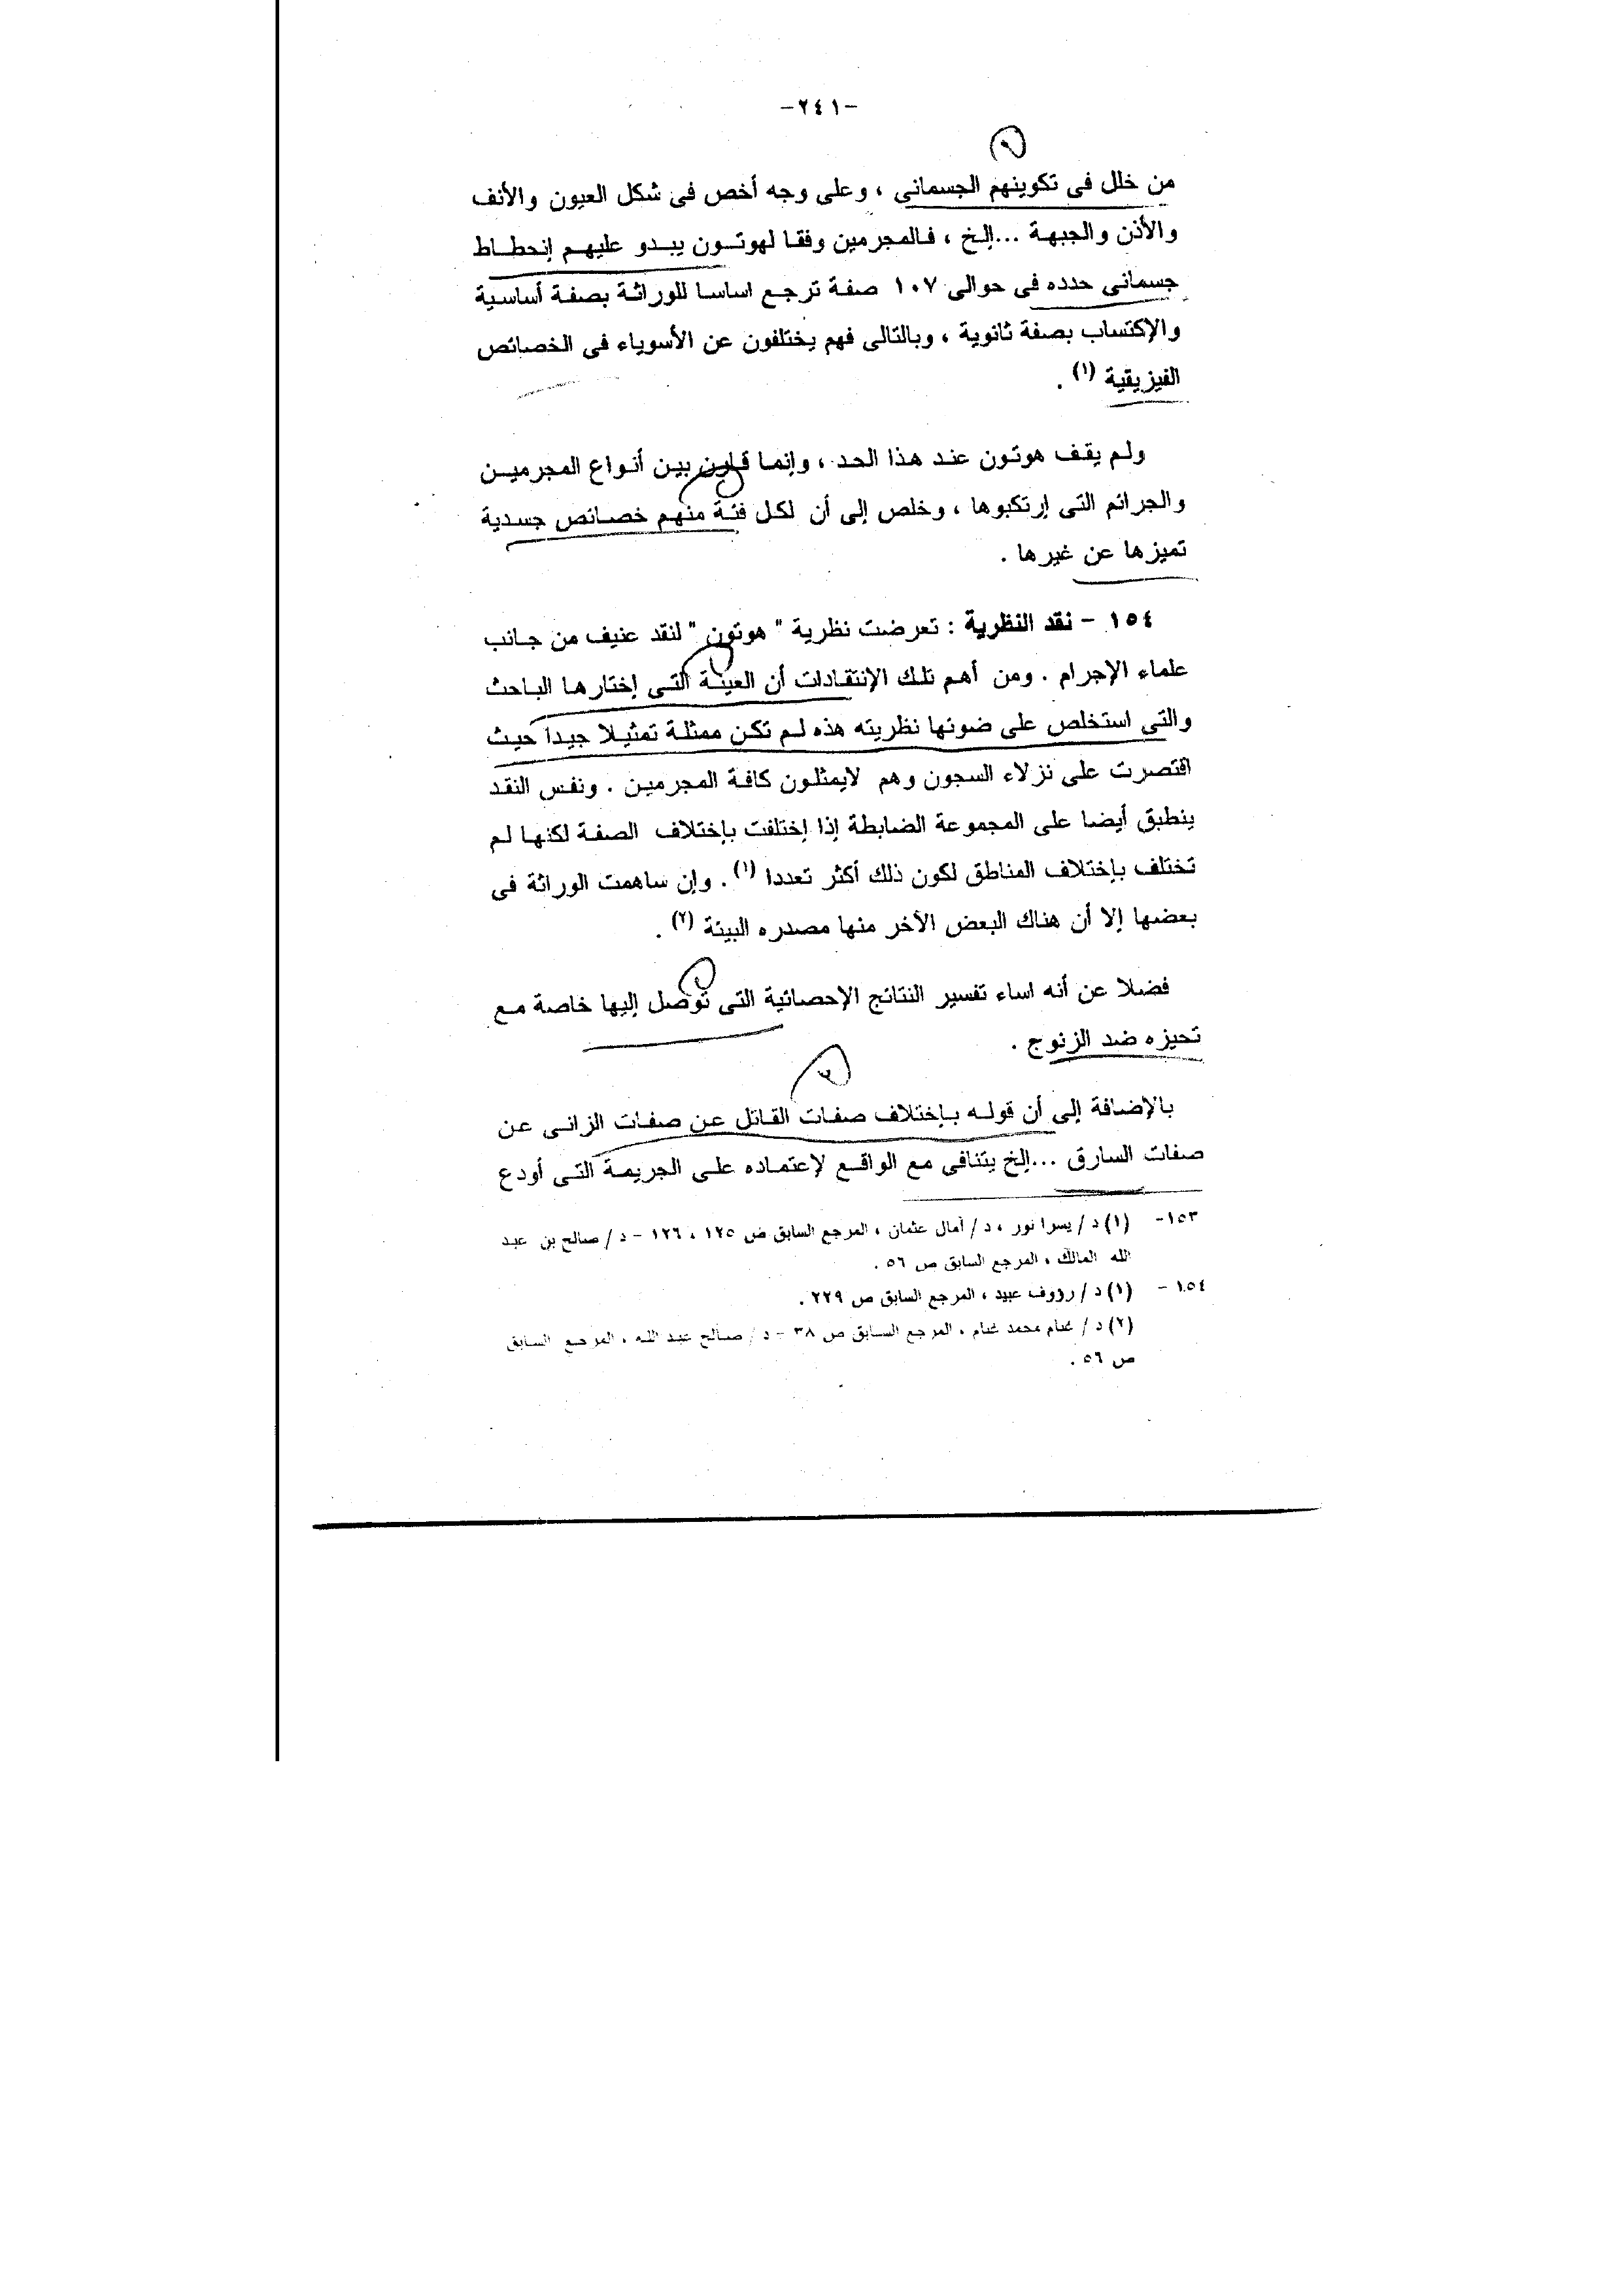 -٢٤١-
من خلل فى تكوينهم الجسمانى ، وعلى وجه أخص فى شكل العيون والأنف
والأذن والجبهة ...إلخ ، فالمجرمين وفقا لهوتون يبدو عليهم إنحطاط
جسمانى حدده فى حوالى ١٠٧ صفة ترجع اساسا للوراثة بصفة أساسية
والإكتساب بصفة ثانوية ، وبالتالى فهم يختلفون عن الأسوياء فى الخصائص
الفيزيقية (١) .
ولم يقف هوتون عند هذا الحد ، وإنما قارن بين أنواع المجرمين
والجرائم التى إرتكبوها ، وخلص إلى أن لكل فئة منهم خصائص جسدية
تميزها عن غيرها .
١٥٤ - نقد النظرية : تعرضت نظرية " هوتون " لنقد عنيف من جانب
علماء الإجرام . ومن أهم تلك الإنتقادات أن العينة التى إختارها الباحث
والتى استخلص على ضوئها نظريته هذه لم تكن ممثلة تمثيلا جيدا حيث
اقتصرت على نزلاء السجون وهم لايمثلون كافة المجرمين . ونفس النقد
ينطبق أيضا على المجموعة الضابطة إذا إختلفت بإختلاف الصفة لكنها لم
تختلف بإختلاف المناطق لكون ذلك أكثر تعددا (١) . وإن ساهمت الوراثة فى
بعضها إلا أن هناك البعض الآخر منها مصدره البيئة (٢) .
فضلا عن أنه اساء تفسير النتائج الإحصائية التى توصل إليها خاصة مع
تحيزه ضد الزنوج .
بالإضافة إلى أن قوله بإختلاف صفات القاتل عن صفات الزانى عن
صفات السارق ...إلخ يتنافى مع الواقع لإعتماده على الجريمة التى أودع
١٥٣- (١) د/ يسرا نور ، د/ آمال عثمان ، المرجع السابق ص ١٢٥ ، ١٢٦ - د/ صالح بن عبد
الله المالك ، المرجع السابق ص ٥٦ .
١٥٤ - (١) د/ رؤوف عبيد ، المرجع السابق ص ٢٢٩ .
(٢) د/ غنام محمد غنام ، المرجع السابق ص ٣٨ - د/ صالح عبد الله ، المرجع السابق
ص ٥٦ .